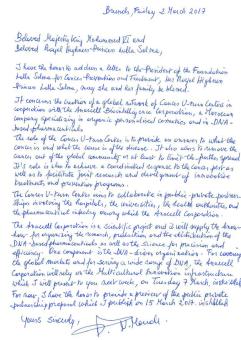 Brunch, Friday 2 March 2017
Beloved Majesty King Mohammed VI and
Beloved Royal Highness Princess Lalla Salma,
I have the honor to address a letter to the President of the Foundation
Lalla Salma for Cancer Prevention and Treatment, Her Royal Highness
Princess Lalla Salma, may she and her family be blessed.
It concerns the creation of a global network of Cancer U-turn Centers in
cooperation with the Arracell Corporation, a Moroccan
company specializing in organic personalized cosmetics and in DNA-
based pharmaceuticals.
The role of the Cancer U-turn Center is to provide an answer to what the
cancer is and what the cause is of the disease. It also aims to remove the
cancer out of the global community or at least to limit the further spread
It's role is also to achieve a coordinated response to the cancer, just as
well as to facilitate joint research and development of innovative
treatment and prevention programs.
The Cancer U-turn Center aims to collaborate in public-private partner-
ships involving the hospitals, the universities, the health authorities, and
the pharmaceutical industry among which the Arracell Corporation.
The Arracell Corporation is a scientific project and it will supply the know-
how for organizing the research, production and the distribution of the
DNA-based pharmaceuticals as well as the science for precision and
efficacy. One component is the DNA-driven organization. For covering
the global markets and for serving a wide range of DNA, the Arracell
Corporation will rely on the Multicultural Innovation infrastructure
which I will provide to you next week, on Tuesday 7 March,
For now, I have the honor to provide a preview of the public private
partnership proposal which I publish on 15 March 2017.
Yours Sincerely,